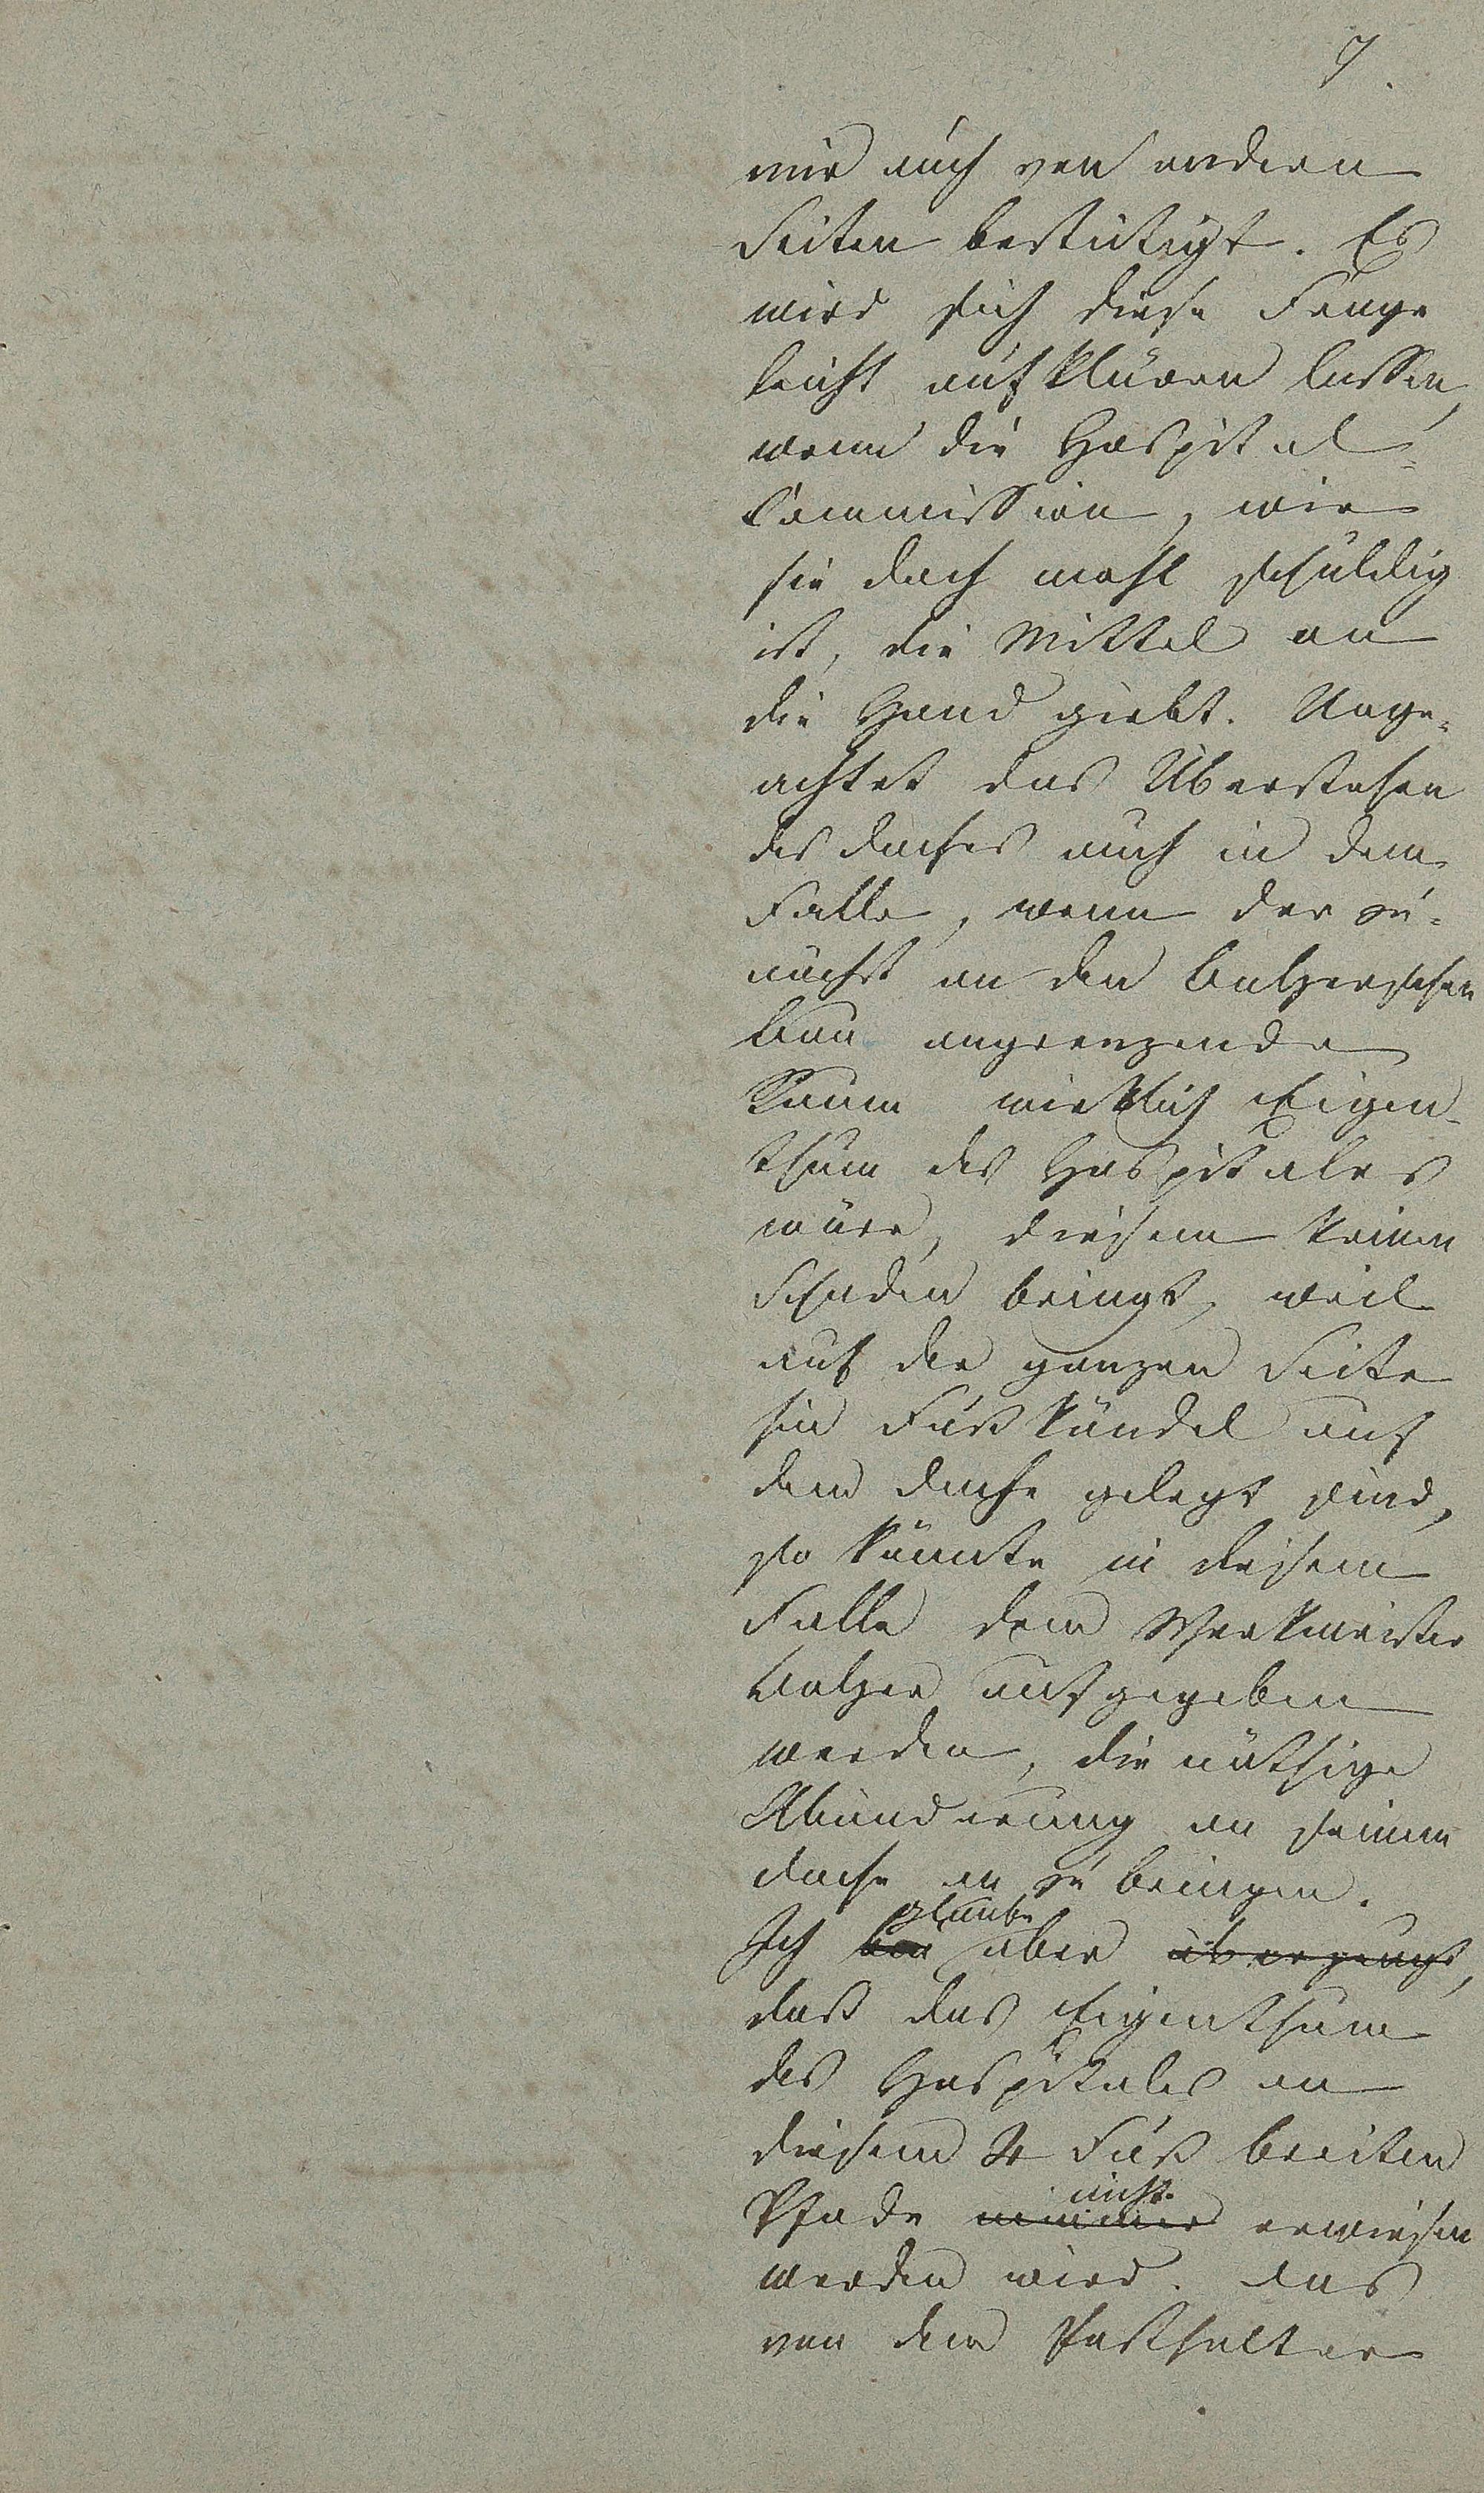 7.
mir auch von andern
Seiten bestätigt. Es
wird sich diese Frage
leicht aufklären lassen,
wenn die Hospital-
Commission, wie
sie doch wohl schuldig
ist, die Mittel an
die Hand giebt. Unge-
achtet das Überstehen
des Daches auch in dem
Falle, wenn der zu-
nächst an den Balzerschen
Bau angrenzende
Raum wirklich Eigen-
thum des Hospitales
wäre, diesem keinen
Schaden bringt, weil
auf der ganzen Seite
hin Fußkändel auf
dem Dache gelegt sind,
so könnte in diesem
Falle dem Werkmeister
Balzer aufgegeben
werden, die nöthige
Abänderung an seinem
Dache an zu bringen.
glaube
Ich bin aber überzeugt,
daß das Eigenthum
des Hospitales an
diesem 4 Fuß breiten
nicht
Pfade nimmer erwiesen
werden wird. Das
von dem Posthalter